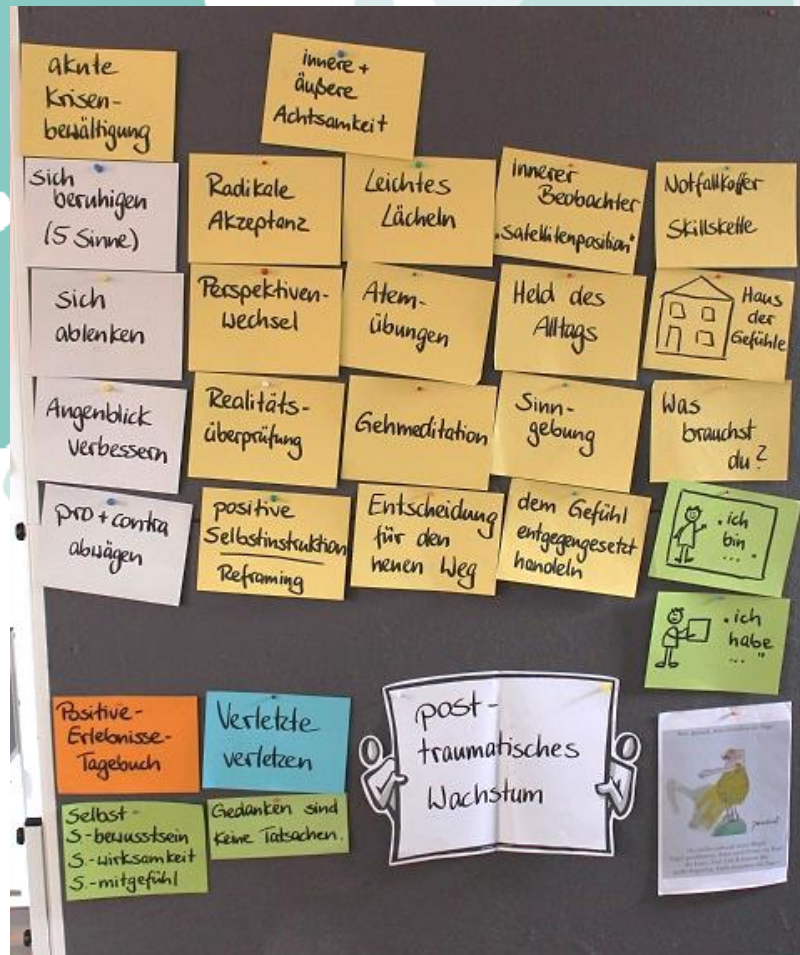 akute
Krisen-
bewältigung
innere +
äußere
Achtsamkeit
sich
beruhigen
(5 Sinne)
Radikale
Akzeptanz
Leichtes
Lächeln
innerer
Beobachter
"Satellitenposition"
Notfallkoffer
Skillskette
sich
ablenken
Perspektiven-
wechsel
Atem-
übungen
Held des
Alltags
Haus
der
Gefühle
Augenblick
verbessern
Realitäts-
überprüfung
Gehmeditation
Sinn-
gebung
Was
brauchst
du?
pro + contra
abwägen
positive
Selbstinstruktion
Reframing
Entscheidung
für den
neuen Weg
dem Gefühl
entgegengesetzt
handeln
"ich
bin
..."
"ich
habe
..."
Positive-
Erlebnisse-
Tagebuch
Verletzte
verletzen
post-
traumatisches
Wachstum
Selbst-
S-bewusstsein
S.-wirksamkeit
S.-mitgefühl
Gedanken sind
keine Tatsachen.